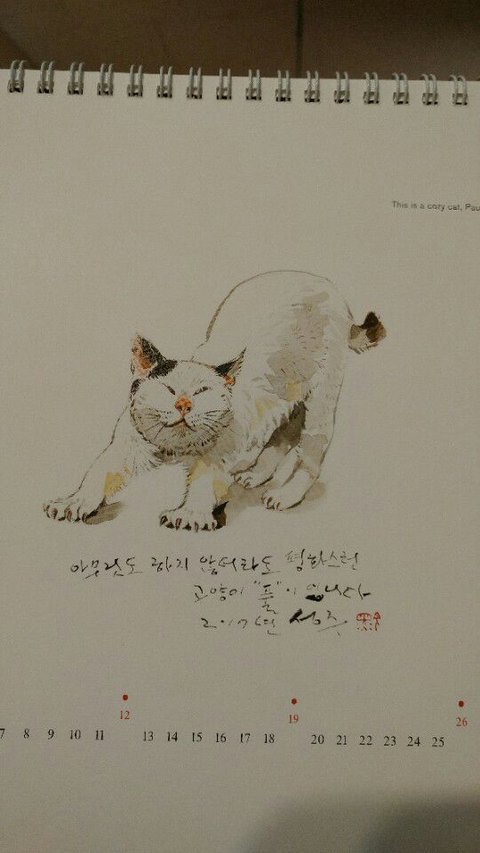 This is a cozy cat, Pau
아무것도 하지 않더라도 평화스런
고양이 "폴"이 입니다
12 19 26
7 8 9 10 11 13 14 15 16 17 18 20 21 22 23 24 25